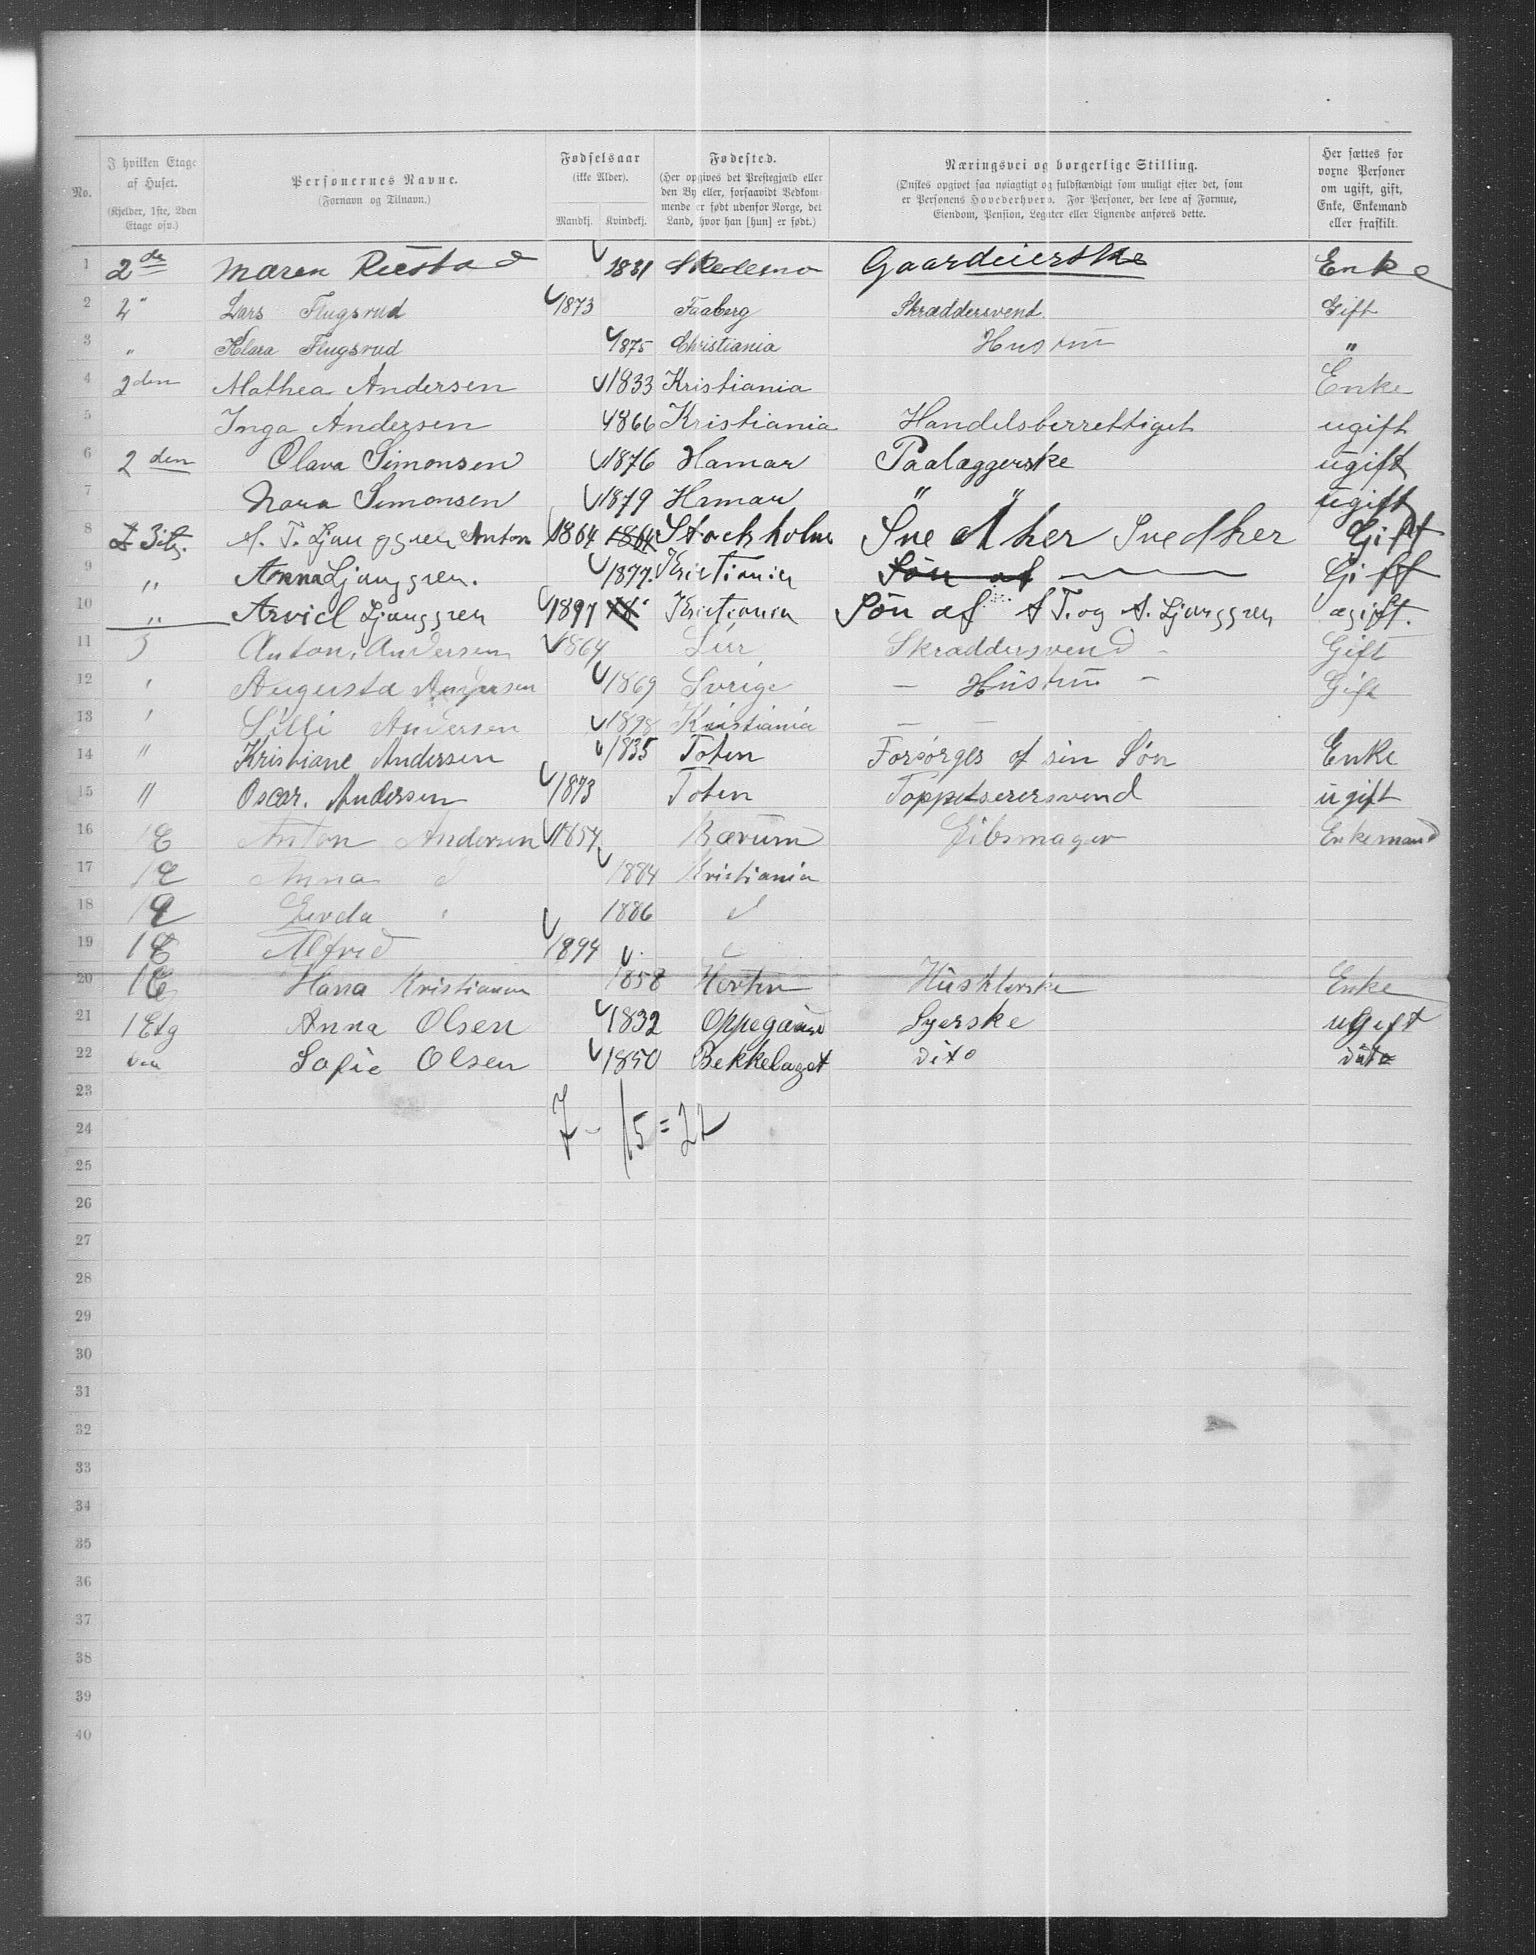 No.
I hvilken Etage af Huset. (Kjelder, 1ste, 2den Etage osv.)
Personernes Navne. (Fornavn og Tilnavn.)
Fødselsaar (ikke Alder). Mandkj. Kvindekj.
Fødested. (Her opgives det Prestegjæld eller den By eller, forsaavidt Vedkommende er født udenfor Norge, det Land, hvor han [hun] er født.)
Næringsvei og borgerlige Stilling. (Ønskes opgivet saa nøiagtigt og fuldstændigt som muligt efter det, som er Personens Hovederhverv. For Personer, der leve af Formue, Eiendom, Pension, Legater eller Lignende anføres dette.
Her sættes for voxne Personer om ugift, gift, Enke, Enkemand eller fraskilt.
1 2de Maren Rustad 1831 Skedesmo Gaardeierske Enke
2 2" Lars Flugsrud 1873 Faaberg Skræddersvend Gift
3 " Klara Flugsrud 1875 Christiania Hustru "
4 2den Mathea Andersen 1833 Kristiania Enke
5 Inga Andersen 1866 Kristiania Handelsberrettiget ugift
6 2 den Olava Simonsen 1876 Hamar Paalæggerske ugift
7 Nora Simonsen 1879 Hamar " " ugift
8 3 Etg. A. T. Ljunggren Anton 1864 1864 Stockholm Snedker Snedker Gift
9 " Anna Ljunggren. 1877. Kristiania Søn af Gift
10 " Arvid Ljunggren 1897 Kristiania Søn af A T. og A. Ljunggren ugift.
11 3 Anton Andersen 1864 Lier Skræddersvend - Gift
12 " Augusta Andersen 1869 Sverige - Hustru - Gift
13 " Silli Andersen 1898 Kristiania — —
14 " Kristiane Andersen 1835 Toten Forsørges af sin Søn Enke
15 " Oscar. Andersen 1873 Toten Tappetserersvend ugift
16 1 E Anton Andersen 1854 Bærum Gibsmager Enkemand
17 1 E Anna d 1884 Kristiania
18 1 E Gerda " 1886 d
19 1 E Alfred 1894
20 1 E Hana Kristiansen 1858 Horten Huskterske Enke
21 1 Etg Anna Olsen 1832 Oppegaard Syerske ugift
22 Sofie Olsen 1850 Bekkelaget dito dito
23
7 - 15 = 22
24
25
26
27
28
29
30
31
32
33
34
35
36
37
38
39
40